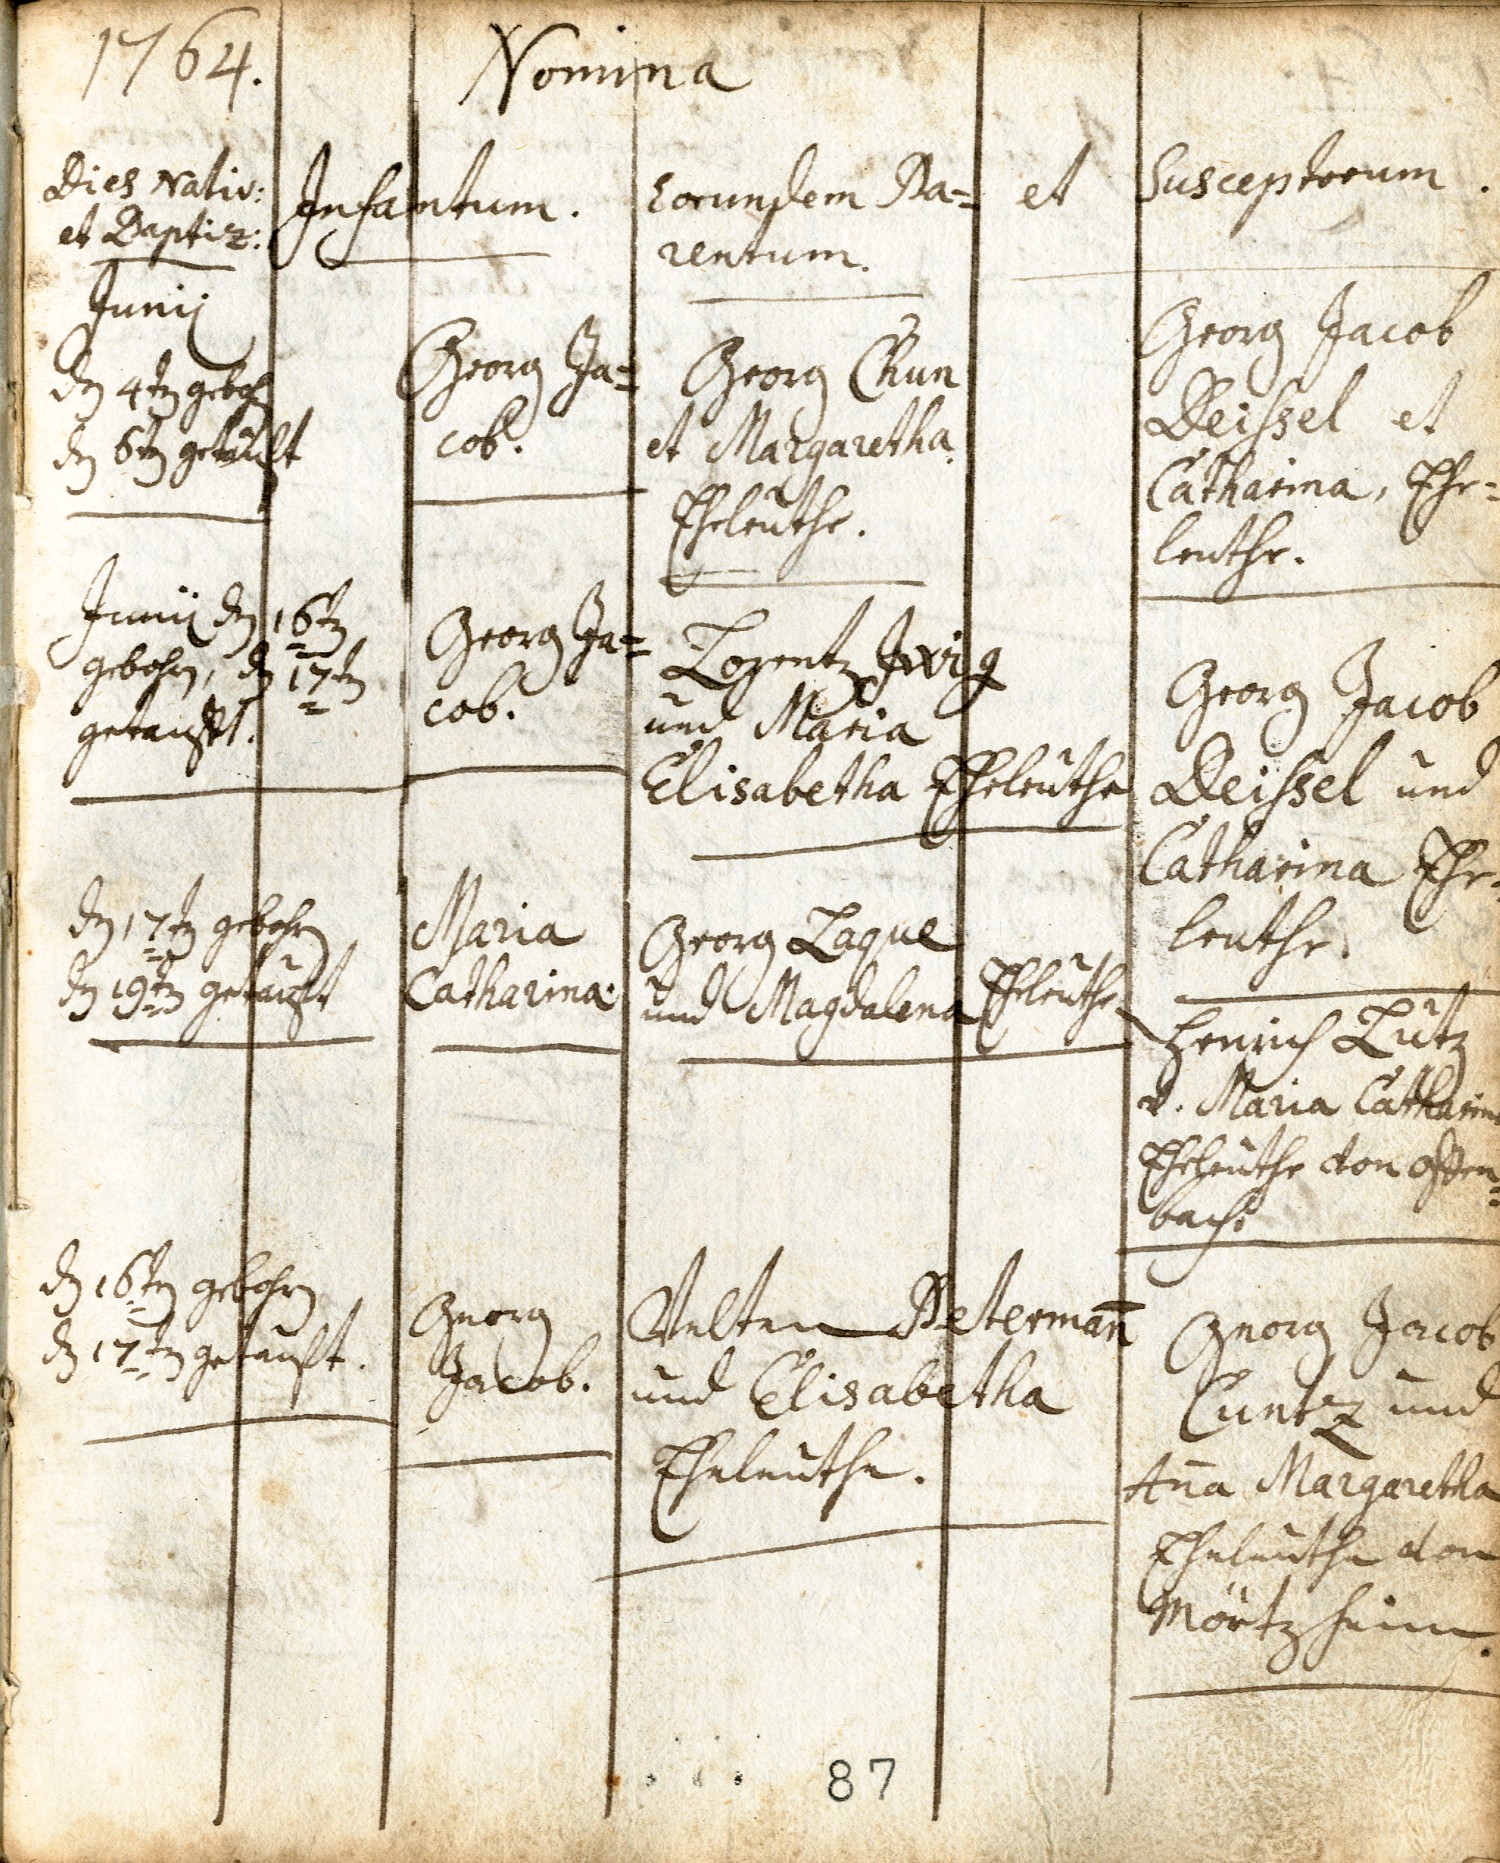 1764.
Nomina
Dies Nativ:
et Baptiz:
Infantum.
Eorundem Pa=
rentum.
et
Susceptorum.
Junij
dn 4tn gebohrn
dn 6tn getauft
Georg Ja=
cob.
Georg Chun
et Margaretha
Eheleuthe.
Georg Jacob
Deissel et
Catharina, Ehe=
leuthe.
Junij dn 16tn
gebohrn, dn 17tn
getauft.
Georg Ja=
cob.
Lorentz
und Maria
Elisabetha Eheleuthe
Georg Jacob
Deissel und
Catharina Ehe=
leuthe.
dn 17tn gebohrn
dn 19tn getauft
Maria
Catharina.
Georg Laque
und Magdalena Eheleuthe
Henrich Lutz
v. Maria Catharina
Eheleuthe von Offen=
bach.
dn 16tn gebohrn
dn 17tn getauft.
Georg
Jacob.
Velten Petermañ
und Elisabetha
Eheleuthe.
Georg Jacob
Cuntz und
Aña Margaretha
Eheleuthe von
Mörtzheim.
87